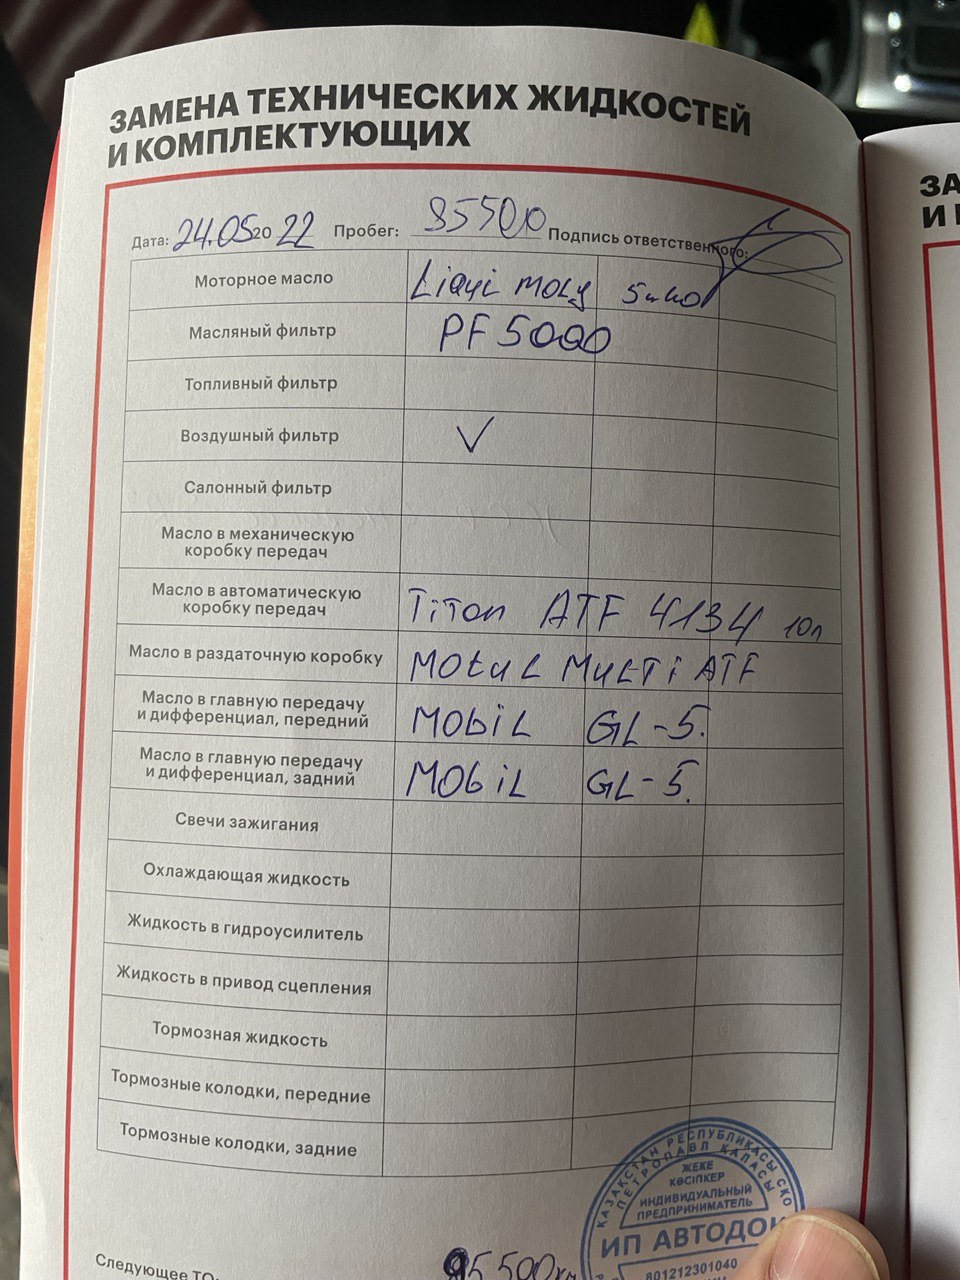 ЗАМЕНА ТЕХНИЧЕСКИХ ЖИДКОСТЕЙ
И КОМПЛЕКТУЮЩИХ
Дата: 24.05 20 22 Пробег: 85500 Подпись ответственного:
Моторное масло Liqui moly 5w40
Масляный фильтр PF5000
Топливный фильтр
Воздушный фильтр ✓
Салонный фильтр
Масло в механическую
коробку передач
Масло в автоматическую
коробку передач Titan ATF 4134 10л
Масло в раздаточную коробку Motul Multi ATF
Масло в главную передачу
и дифференциал, передний Mobil GL-5.
Масло в главную передачу
и дифференциал, задний Mobil GL-5.
Свечи зажигания
Охлаждающая жидкость
Жидкость в гидроусилитель
Жидкость в привод сцепления
Тормозная жидкость
Тормозные колодки, передние
Тормозные колодки, задние
Следующее ТО: 95500км
ҚАЗАҚСТАН РЕСПУБЛИКАСЫ СҚО
ПЕТРОПАВЛ ҚАЛАСЫ
ЖЕКЕ
КӘСІПКЕР
ИНДИВИДУАЛЬНЫЙ
ПРЕДПРИНИМАТЕЛЬ
ИП АВТОДОК
801212301040
ЗА
И